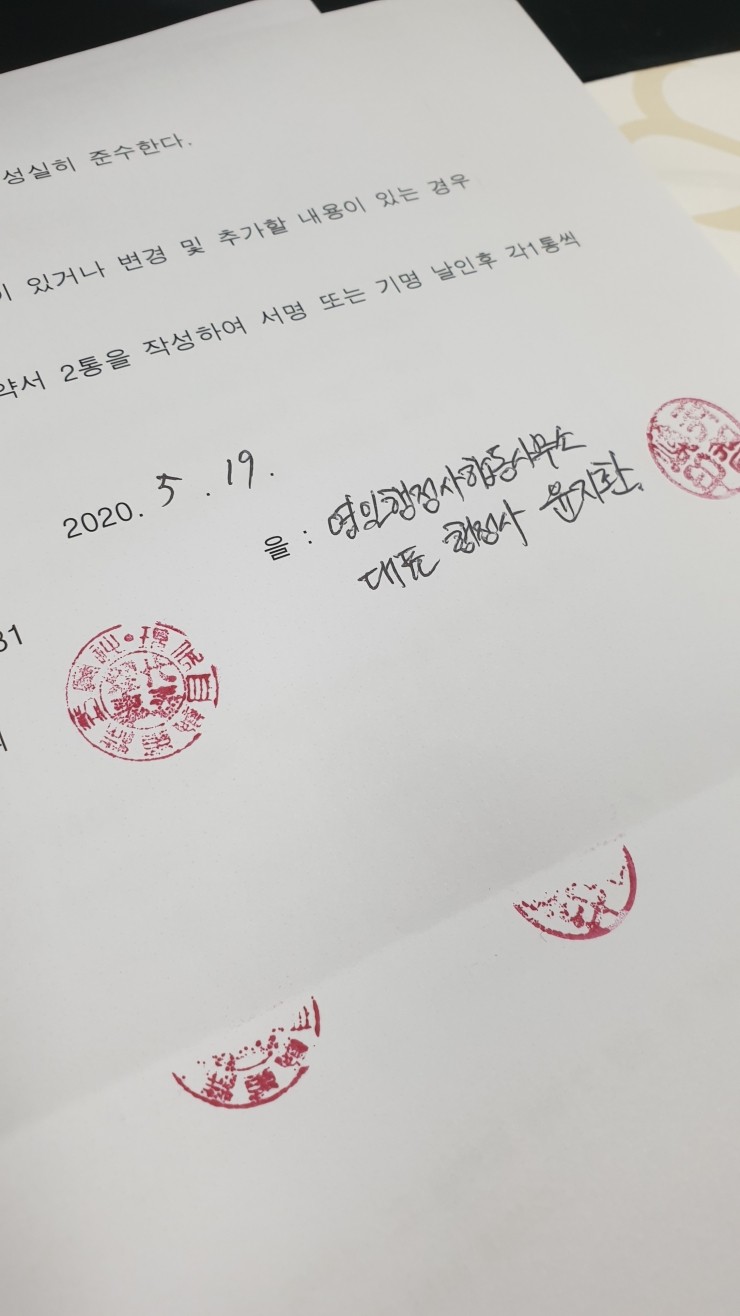 성실히 준수한다.
있거나 변경 및 추가할 내용이 있는 경우
약서 2통을 작성하여 서명 또는 기명 날인후 각1통씩
2020. 5 . 19.
을 : 영인행정사합동사무소
대표 행정사 윤지환
31